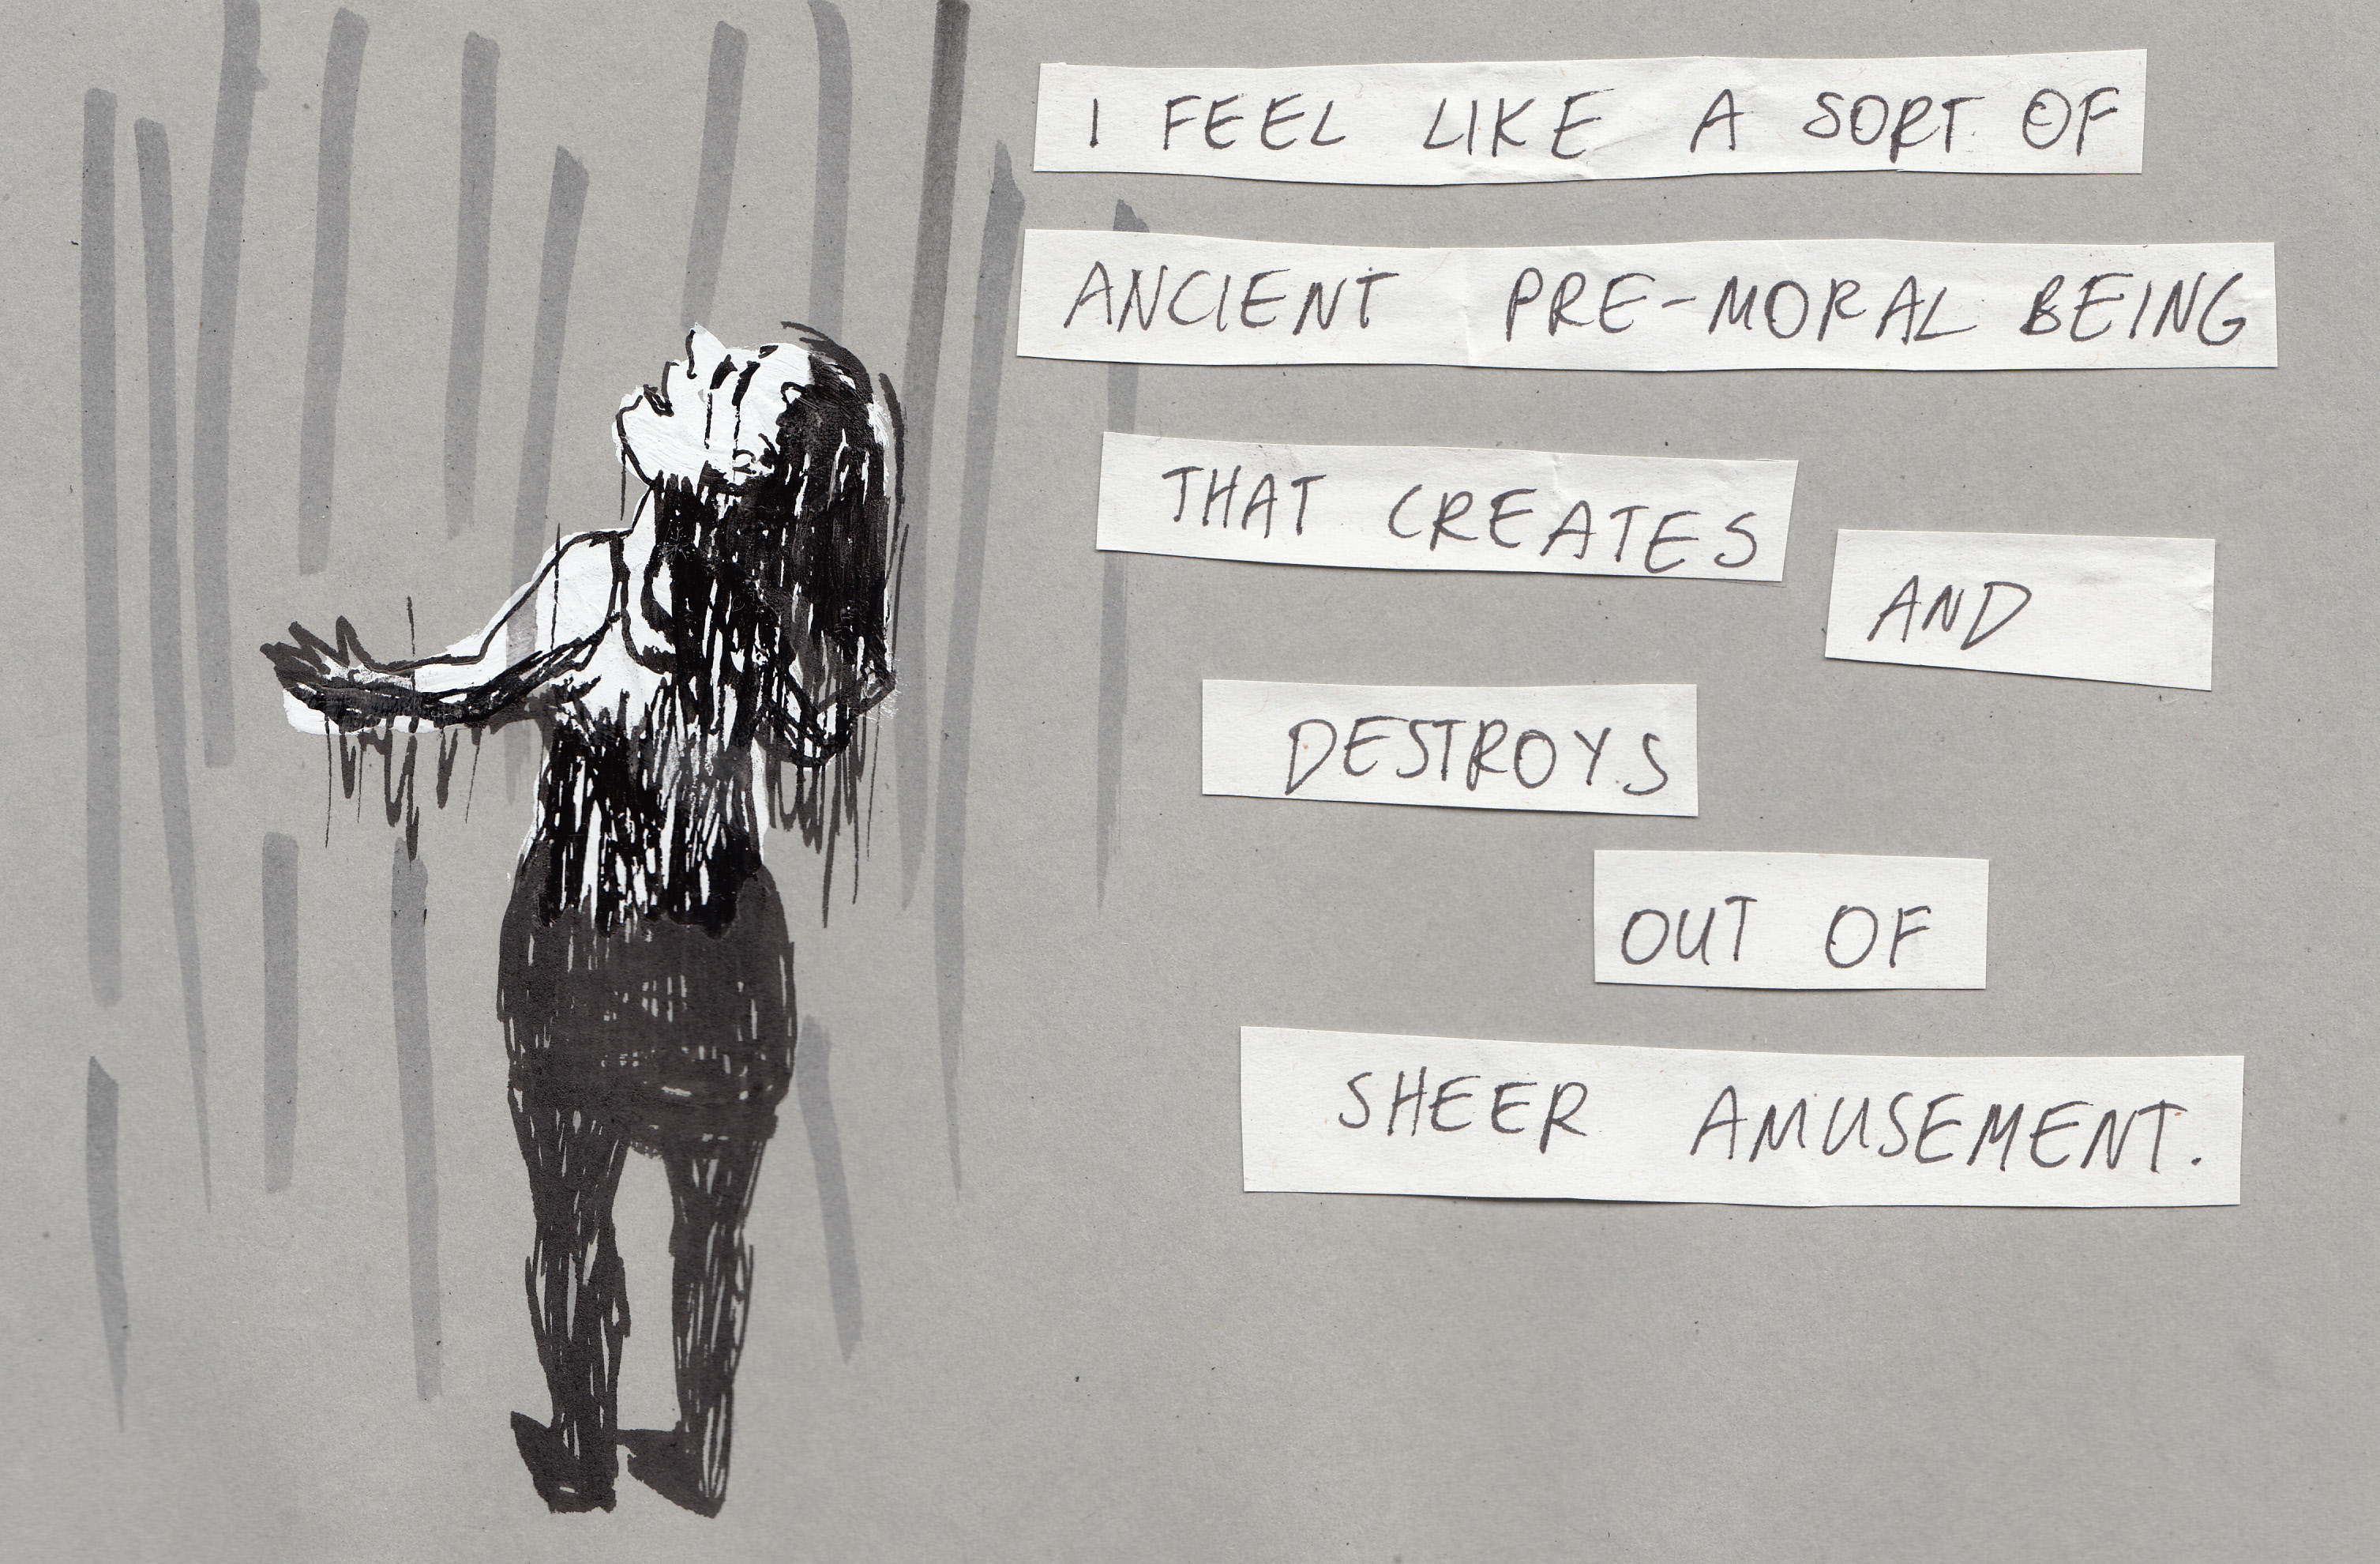 I FEEL LIKE A SORT OF
ANCIENT PRE-MORAL BEING
THAT CREATES
AND
DESTROYS
OUT OF
SHEER AMUSEMENT.